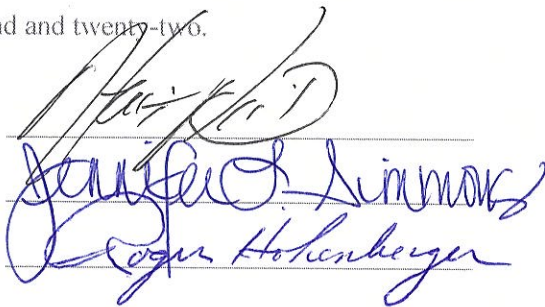 nd and twenty-two.
Jennifer L. Simmons
Roger Hohenberger